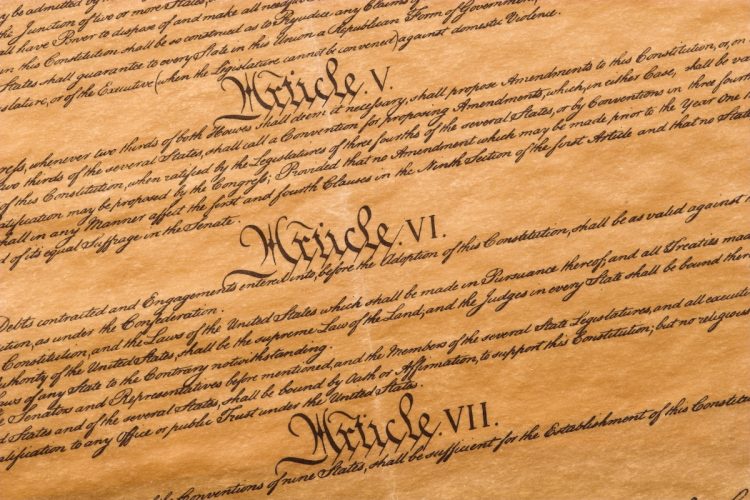 be admitted by
the Junction of two or more States,
have Power to dispose of and make all
in this Constitution shall be so construed as to Prejudice any Claims of
States shall guarantee to every State in this Union a Republican Form of Government,
or of the Executive (when the Legislature cannot be convened) against domestic Violence.
Article. V.
whenever two thirds of both Houses shall deem it necessary, shall propose Amendments to this Constitution, or, on
two thirds of the several States, shall call a Convention for proposing Amendments, which, in either Case, shall be
of this Constitution, when ratified by the Legislatures of three fourths of the several States, or by Conventions in three
may be proposed by the Congress; Provided that no Amendment which may be made prior to the Year One
shall in any Manner affect the first and fourth Clauses in the Ninth Section of the first Article; and that no State
of its equal Suffrage in the Senate.
Article. VI.
Debts contracted and Engagements entered into, before the Adoption of this Constitution, shall be as valid against
as under the Confederation.
Constitution, and the Laws of the United States which shall be made in Pursuance thereof; and all Treaties made
of the United States, shall be the supreme Law of the Land; and the Judges in every State shall be bound
of any State to the Contrary notwithstanding.
Senators and Representatives before mentioned, and the Members of the several State Legislatures, and all
States and of the several States, shall be bound by Oath or Affirmation, to support this Constitution; but no religious
to any Office or public Trust under the United States.
Article. VII.
Conventions of nine States, shall be sufficient for the Establishment of this